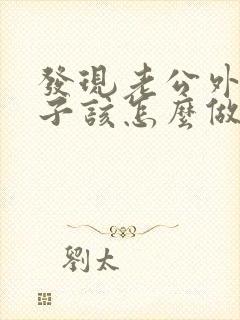 發現老公外
子該怎麼做
劉太